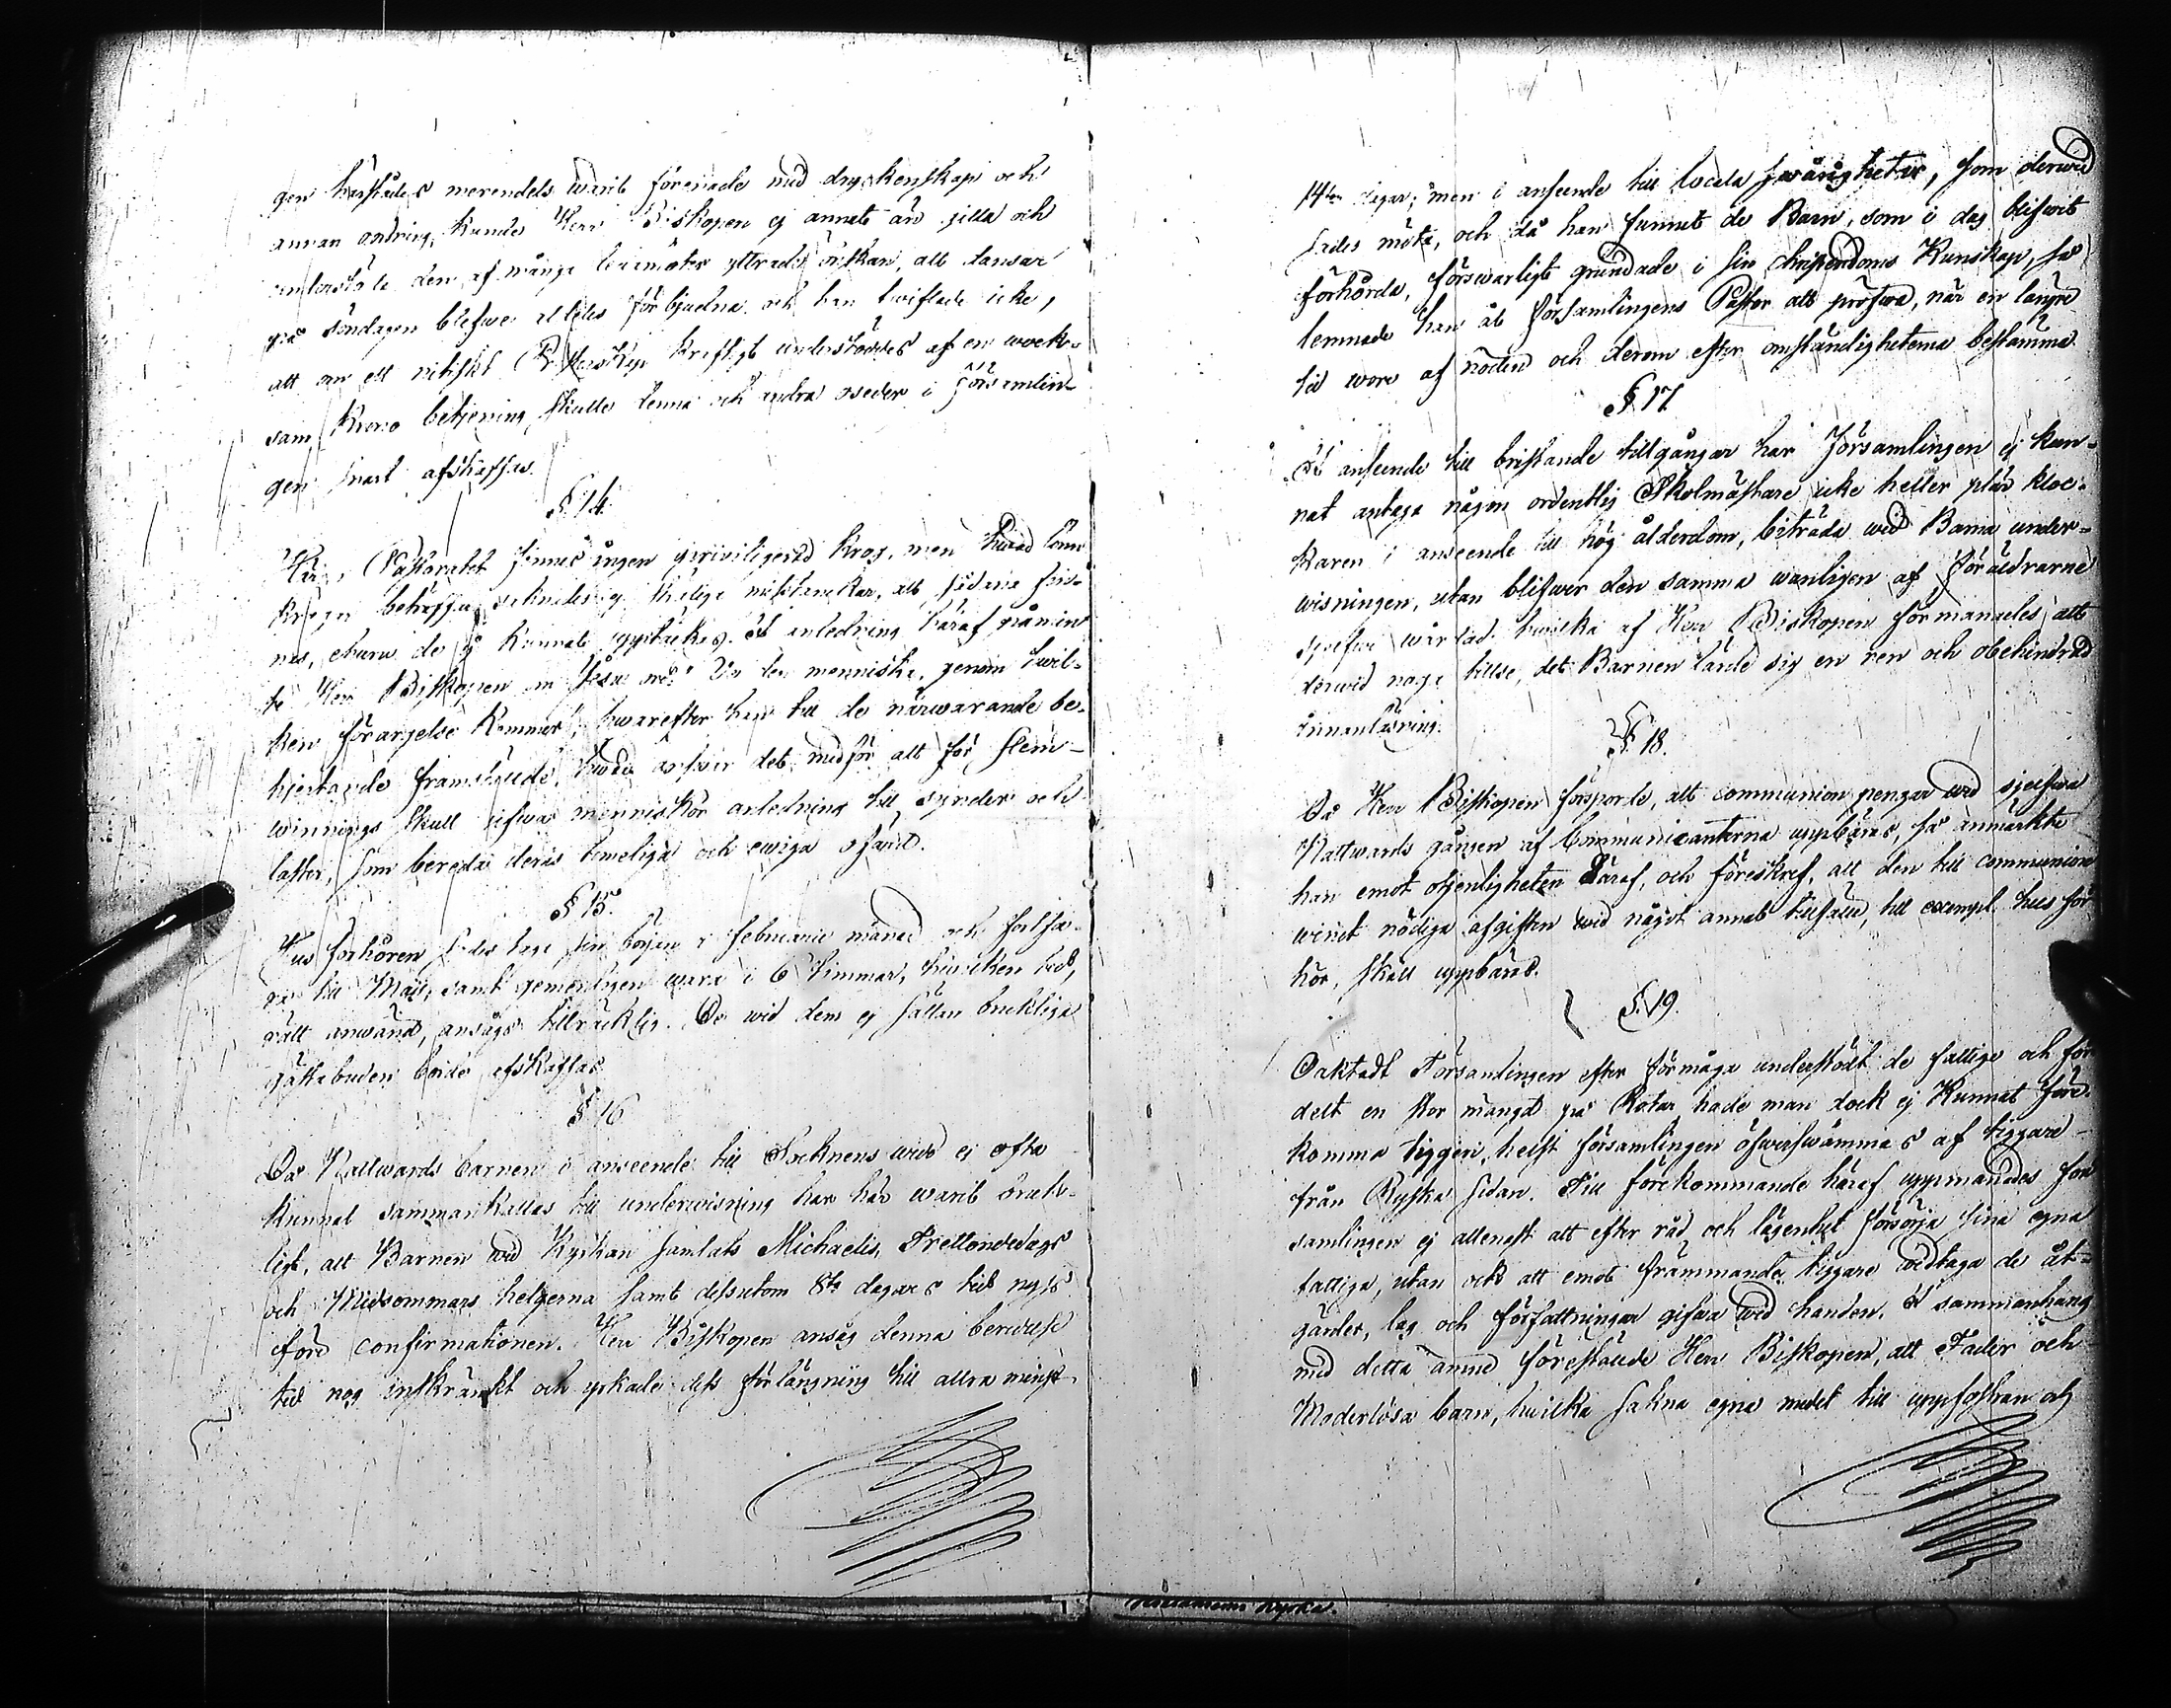 gen härstädes merendels warit förenade med dryckenskap och
annan oordning, kunde Herr Biskopen ej annat än gilla och
understöda den af många ledamöter yttrade önskan, att dansar
på söndagen blefwe alldeles förbjudna och han twiflade icke,
att om ett nitiskt Presterskap kraftigt understöddes af en wack-
sam Krono betjening, skulle denna och andra oseder i Församlin-
gen snart afskaffas.
§ 14.
Här i Pastoratet finnes ingen priviligerad krog, men hwad lönn
krogar beträffar saknades ej skälige misstankar, att sådana fin-
nas, ehuru de ej kunnat upptäckas. I anledning häraf påmin
te Herr Biskopen om Jesu ord: Ve den menniska, genom hwil-
ken förargelse kommer, hwarefter han till de närwarande be-
hjertande framstälde, hwad answar det medför att för slem
winnings skull gifwa menniskor anledning till synder och
laster, som bereda deras timeliga och ewiga ofärd.
§ 15.
Hus förhören sades taga sin början i februarii månad och fortfa-
ra till Maii, samt gemenligen wara i 6 timmar, hwilken tid,
rätt anwänd, ansågs tillräcklig. De wid dem ej sällan brukliga
gästabuden borde afskaffas.
§ 16
Då Nattwards barnen i anseende till Socknens widd ej ofta
kunnat sammankallas till underwisning har här warit bruk-
ligt, att Barnen wid Kyrkan samlats Michaelis, Trettondedags
och Midsommars helgerna samt dessutom 8ta dagars tid nyss
före confirmationen. Herr Biskopen ansåg denna
tid nog inskränkt och yrkade dess förlängning till allra minst
14ton dagar; men i anseende till locala swårigheter, som derwid
sades möta, och då han funnit de Barn, som i dag blifwit
förhörda, förswarligt grundade i sin christendoms Kunskap, så
lemnade han åt Församlingens Pastor att pröfwa, när en längre
tid wore af nöden och derom efter omständigheterna bestämma.
§ 17
I anseende till bristande tillgångar har Församlingen ej kun-
nat antaga någon ordentlig Skolmästare icke heller plär kloc-
karen i anseende till hög ålderdom, biträda wid Barna under-
wisningen, utan blifwer den samma wanligen af föräldrarne
sjelfwe wårdad hwilka af Herr Biskopen förmanades att
derwid noga tillse, det Barnen lärde sig en ren och obehindrad
innanläsning.
§ 18.
Då Herr Biskopen försporde, att communion pengar wid sjelfwa
Nattwards gången af Communicanterna uppbäres, så anmärkte
han emot otjenligheten däraf, och föreskref, att den till communion
winet nödiga afgiften wid något annat tillfälle, till exempel hus för
hör, skall uppbäras.
§. 19.
Oaktadt Församlingen efter förmåga understödt de fattige och för
delt en stor mängd på Rotar, hade man dock ej Kunnat före-
komma tiggeri, helst församlingen öfwerswämmas af tiggare
från Ryska sidan. Till förekommande häraf uppmanades för
samlingen ej allenast att efter råd och lägenhet försörja sina egna
fattiga, utan ock att emot främmande tiggare widtaga de åt-
gärder, lag och författningar gifwa wid handen. I sammanhang
med detta ämne föreställde Herr Biskopen, att Fader och
Moderlösa barn, hwilka sakna egna medel till uppfostran och
Kyrka.